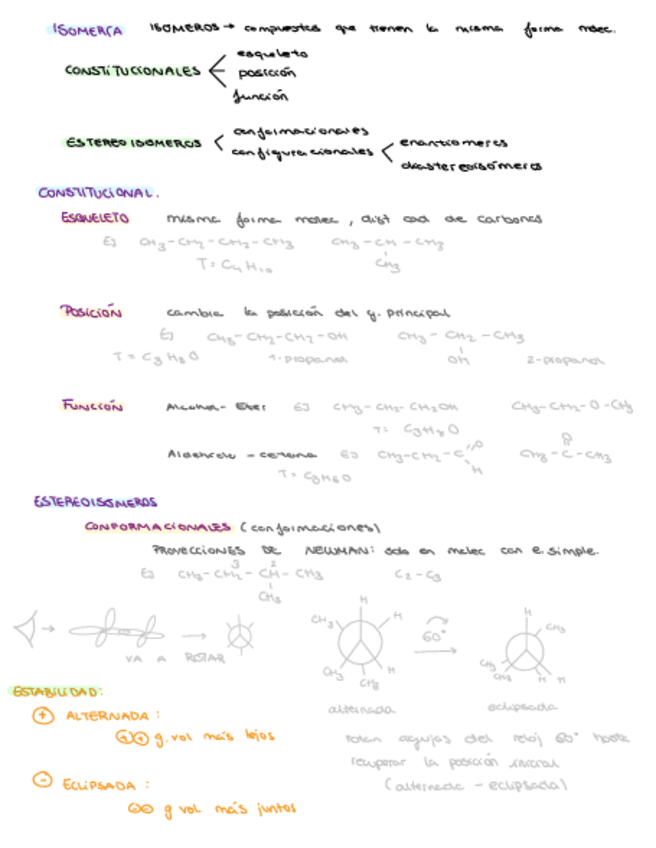 ISOMERÍA ISOMEROS → compuestos que tienen la misma forma molec.
CONSTITUCIONALES < esqueleto
posición
función
ESTEREOISOMEROS < conformacionales
configuracionales < enantiomeros
diastereoisómeros
CONSTITUCIONAL.
ESQUELETO misma forma molec, dist cad de carbonos
Ej CH3-CH2-CH2-CH3 CH3-CH-CH3
T= C4H10 CH3
POSICIÓN cambia la posición del g. principal
Ej CH3-CH2-CH2-OH CH3-CH2-CH3
T= C3H8O 1-propanol OH 2-propanol
FUNCIÓN Alcohol- Eter Ej CH3-CH2-CH2OH CH3-CH2-O-CH3
T= C3H8O
O O
Aldehído - cetona Ej CH3-CH2-C CH3-C-CH3
H
T= C3H6O
ESTEREOISOMEROS
CONFORMACIONALES (conformaciones)
PROYECCIONES DE NEWMAN: solo en molec con e. simple.
3 2
Ej CH3-CH2-CH-CH3 C2-C3
CH3
H H
CH3 H 60° CH3
VA A ROTAR CH3 H CH3 CH3 H H
CH3
alternada eclipsada
ESTABILIDAD:
+ ALTERNADA:
++ g. vol más lejos
rotan agujas del reloj 60° hasta
recuperar la posición inicial
- ECLIPSADA: (alternada - eclipsada)
-- g vol más juntos